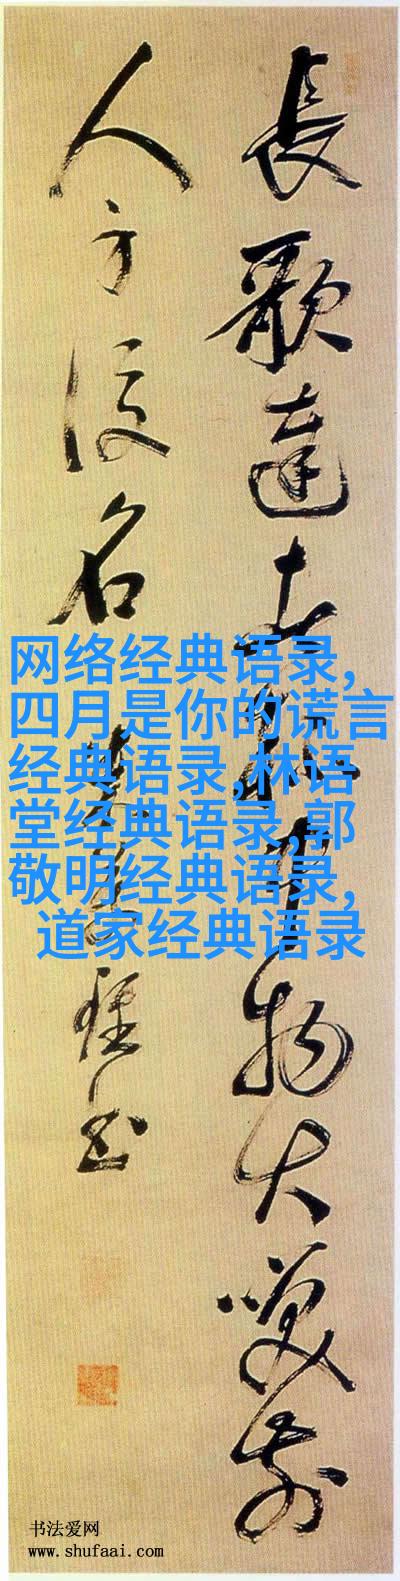 長歌達中物大笑前
人身後名
书
网络经典语录,
四月是你的谎言
经典语录,林语
堂经典语录,郭
敬明经典语录,
道家经典语录
书法爱网
www.shufaai.com